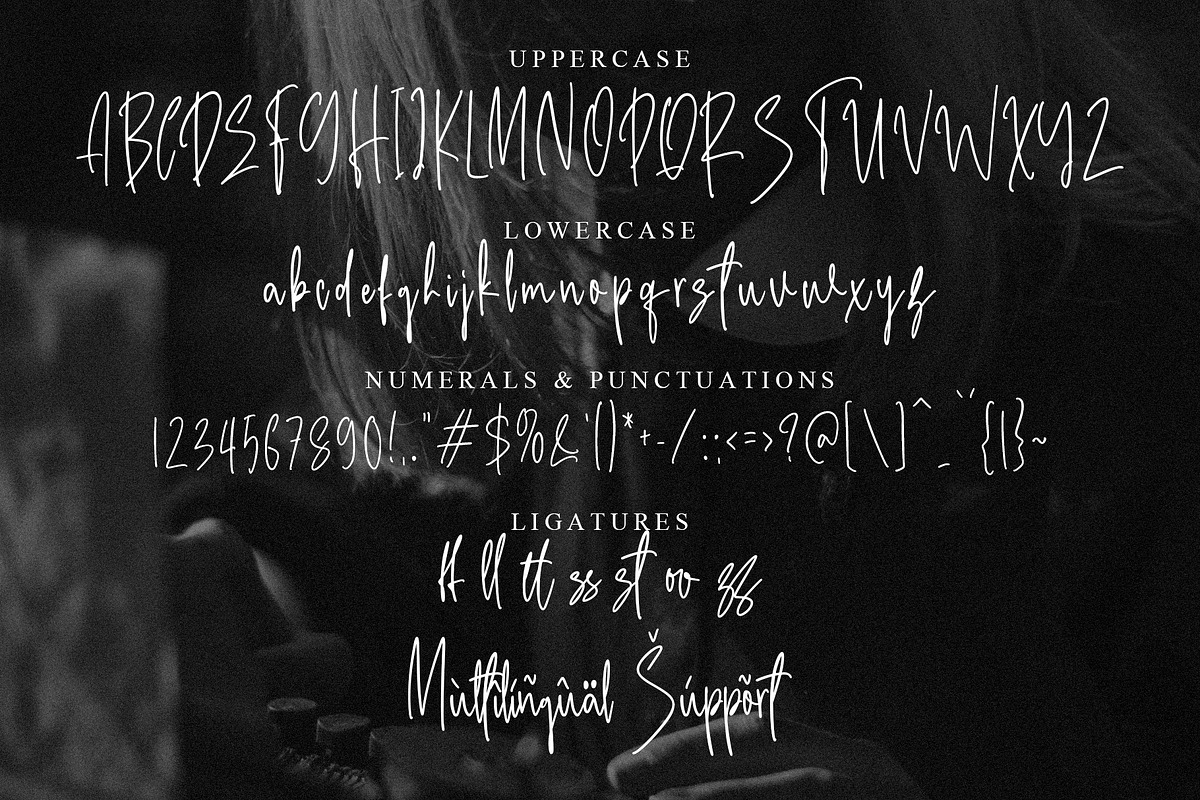 UPPERCASE
ABCDEFGHIJKLMNOPQRSTUVWXYZ
LOWERCASE
abcdefghijklmnopqrstuvwxyz
NUMERALS & PUNCTUATIONS
1234567890!,."#$%&'()*+-/:;<=>?@[\]^_`´{|}~
LIGATURES
ff ll tt ss st oo zz
Mùltîlíñgûäl Šúppõrt